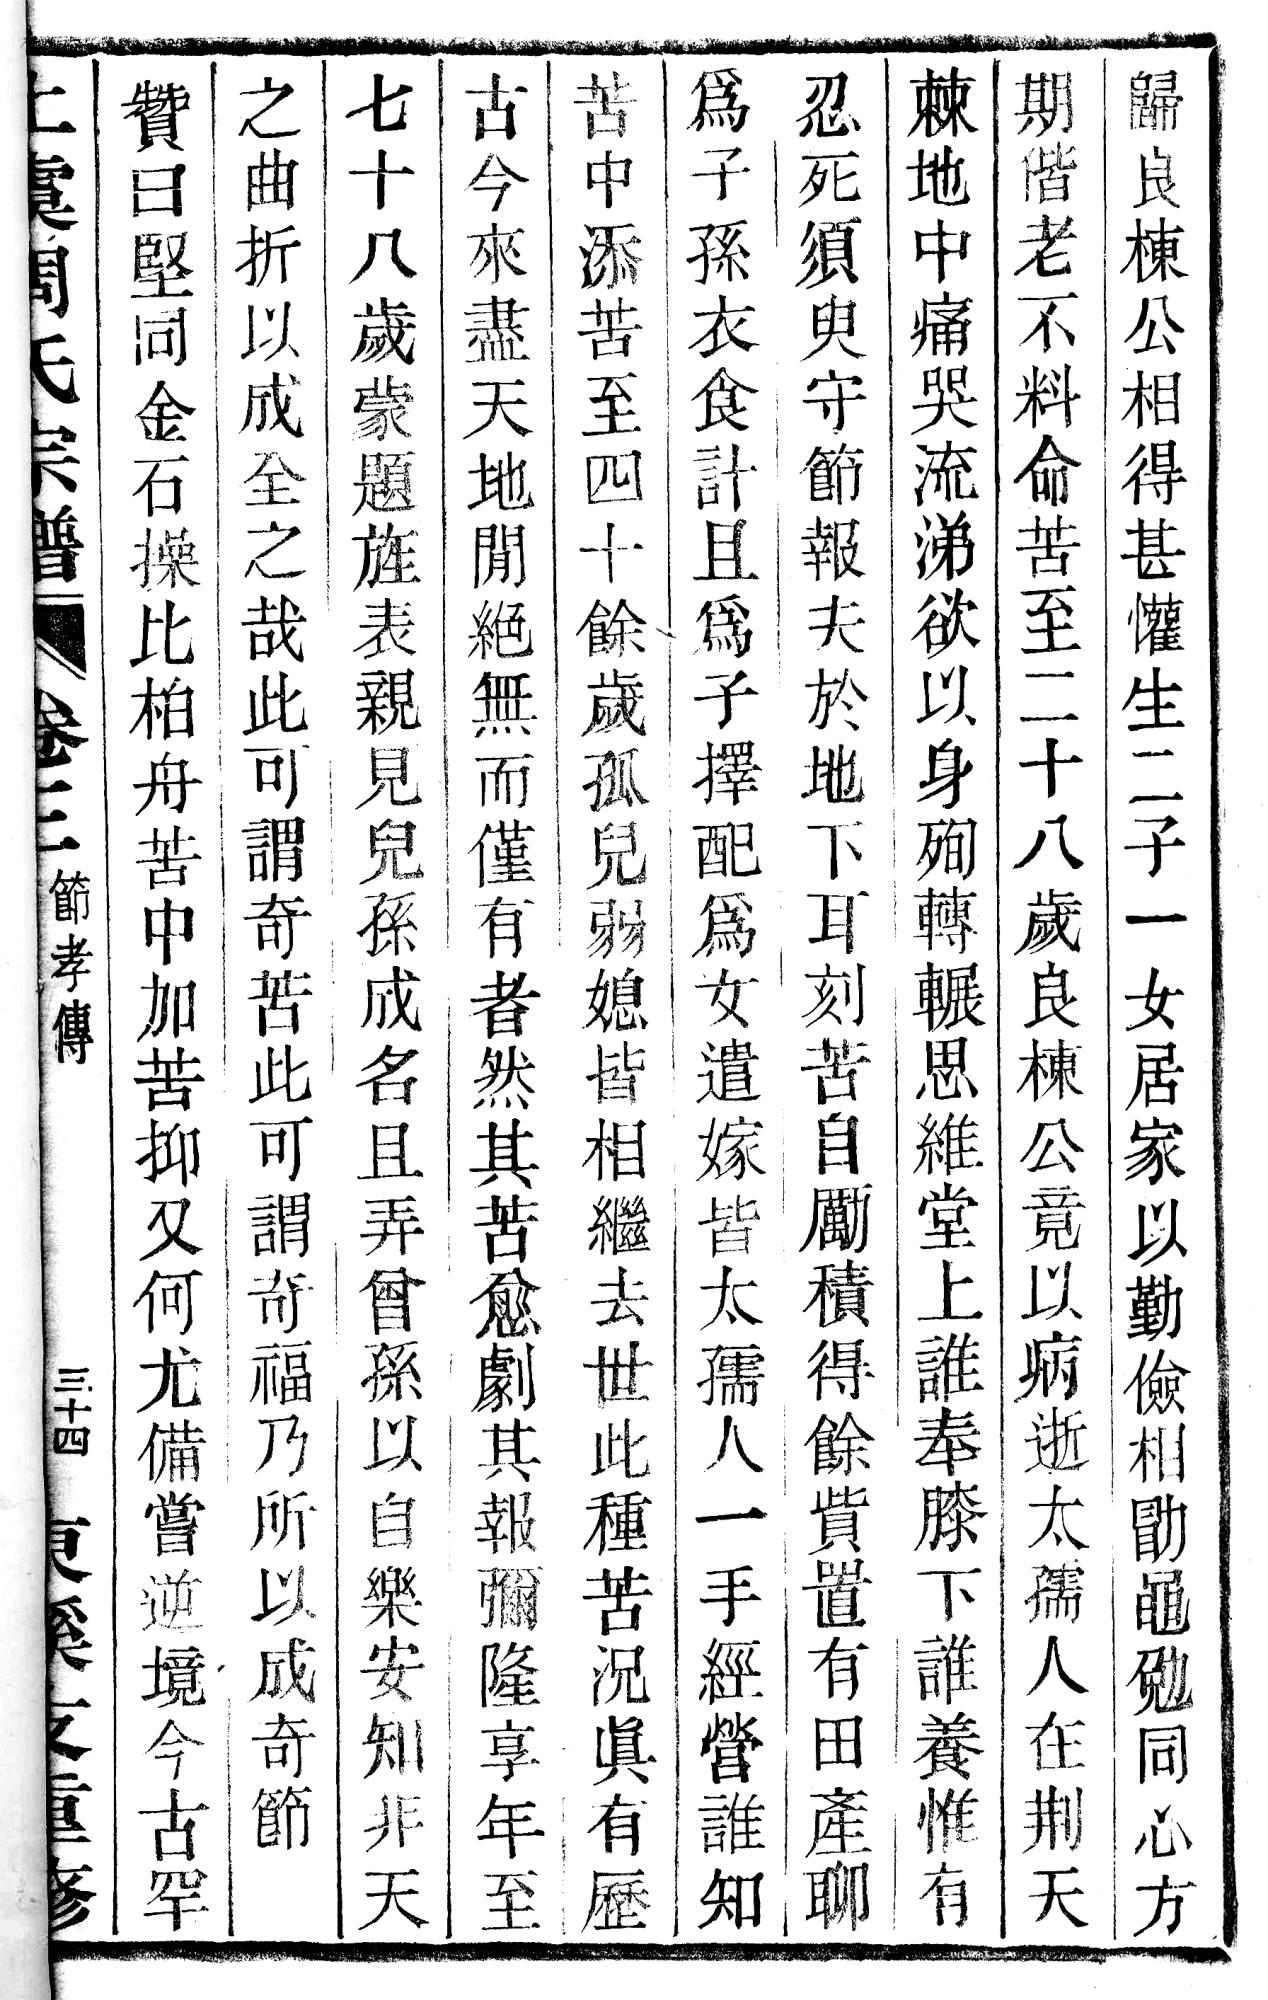 歸良棟公相得甚懽生二子一女居家以勤儉相勖黽勉同心方
期偕老不料命苦至二十八歲良棟公竟以病逝太孺人在荆天
棘地中痛哭流涕欲以身殉轉輾思維堂上誰奉膝下誰養惟有
忍死須臾守節報夫於地下耳刻苦自勵積得餘貲置有田產聊
爲子孫衣食計且爲子擇配爲女遣嫁皆太孺人一手經營誰知
苦中添苦至四十餘歲孤兒弱媳皆相繼去世此種苦況眞有歷
古今來盡天地閒絕無而僅有者然其苦愈劇其報彌隆享年至
七十八歲蒙題旌表親見兒孫成名且弄曾孫以自樂安知非天
之曲折以成全之哉此可謂奇苦此可謂奇福乃所以成奇節
贊曰堅同金石操比柏舟苦中加苦抑又何尤備嘗逆境今古罕
上虞周氏宗譜 卷三 節孝傳 三十四 重修